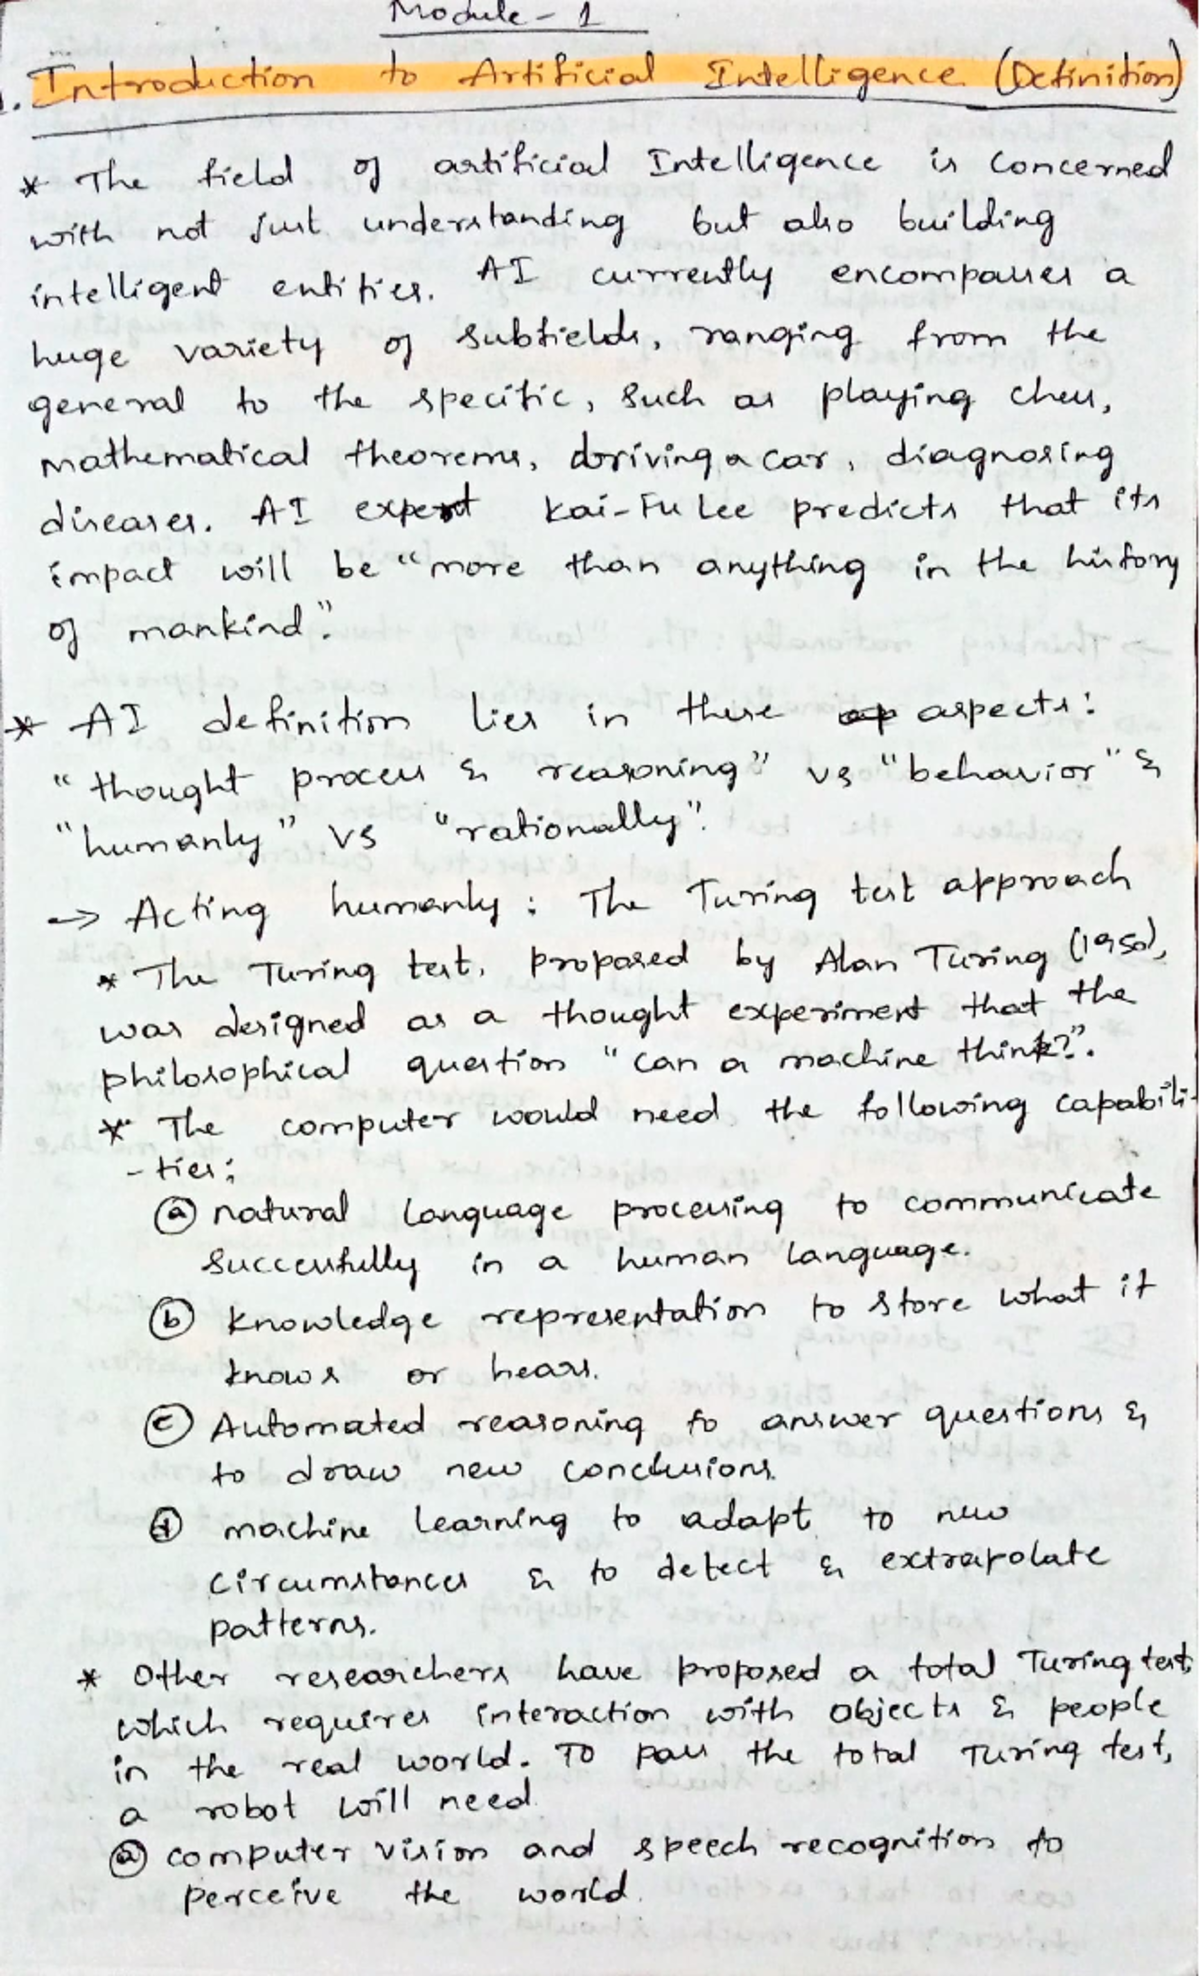 Module - 1
1. Introduction to Artificial Intelligence (Definition)
* The field of artificial Intelligence is concerned
with not just understanding but also building
intelligent entities. AI currently encompasses a
huge variety of subfields, ranging from the
general to the specific, such as playing chess,
mathematical theorems, driving a car, diagnosing
diseases. AI expert Kai-Fu Lee predicts that its
impact will be "more than anything in the history
of mankind".
* AI definition lies in these aspects:
"thought process & reasoning" vs "behavior" &
"humanly" vs "rationally".
→ Acting humanly: The Turing test approach
* The Turing test, proposed by Alan Turing (1950),
was designed as a thought experiment that the
philosophical question "can a machine think?".
* The computer would need the following capabili-
-ties:
(a) natural language processing to communicate
successfully in a human language.
(b) knowledge representation to store what it
knows or hears.
(c) Automated reasoning to answer questions &
to draw new conclusions.
(d) machine learning to adapt to new
circumstances & to detect & extrapolate
patterns.
* Other researchers have proposed a total Turing test,
which requires interaction with objects & people
in the real world. To pass the total Turing test,
a robot will need
(a) computer vision and speech recognition to
perceive the world.